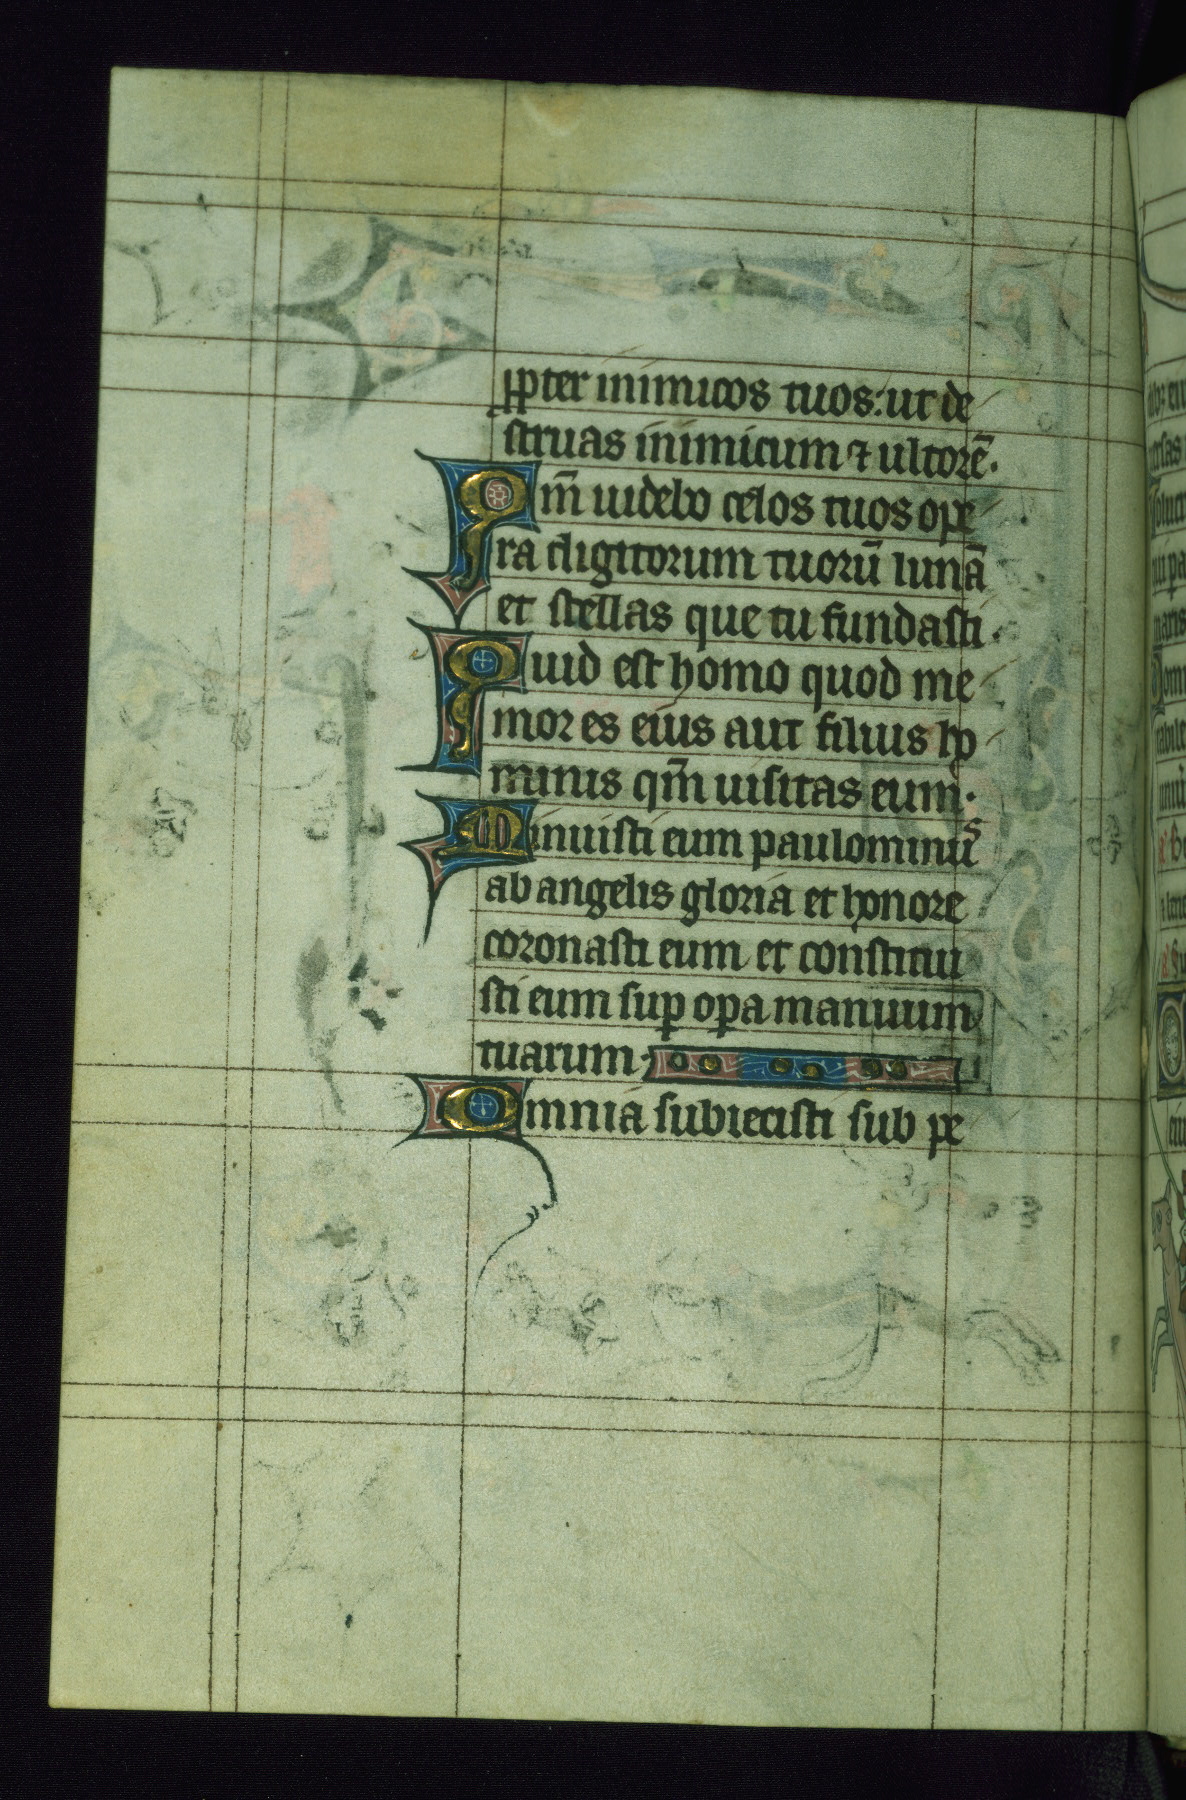 ꝓpter inimicos tuos: ut de
struas inimicum ⁊ ultorē.
Qm̄ uidebo celos tuos ope
ra digitorum tuorū lunā
et stellas que tu fundasti.
Quid est homo quod me
mor es eius aut filius ho
minis qm̄ uisitas eum.
Minuisti eum paulominus
ab angelis gloria et honore
coronasti eum et constitui
sti eum suꝑ oꝑa manuum
tuarum.
Omnia subiecisti sub pe